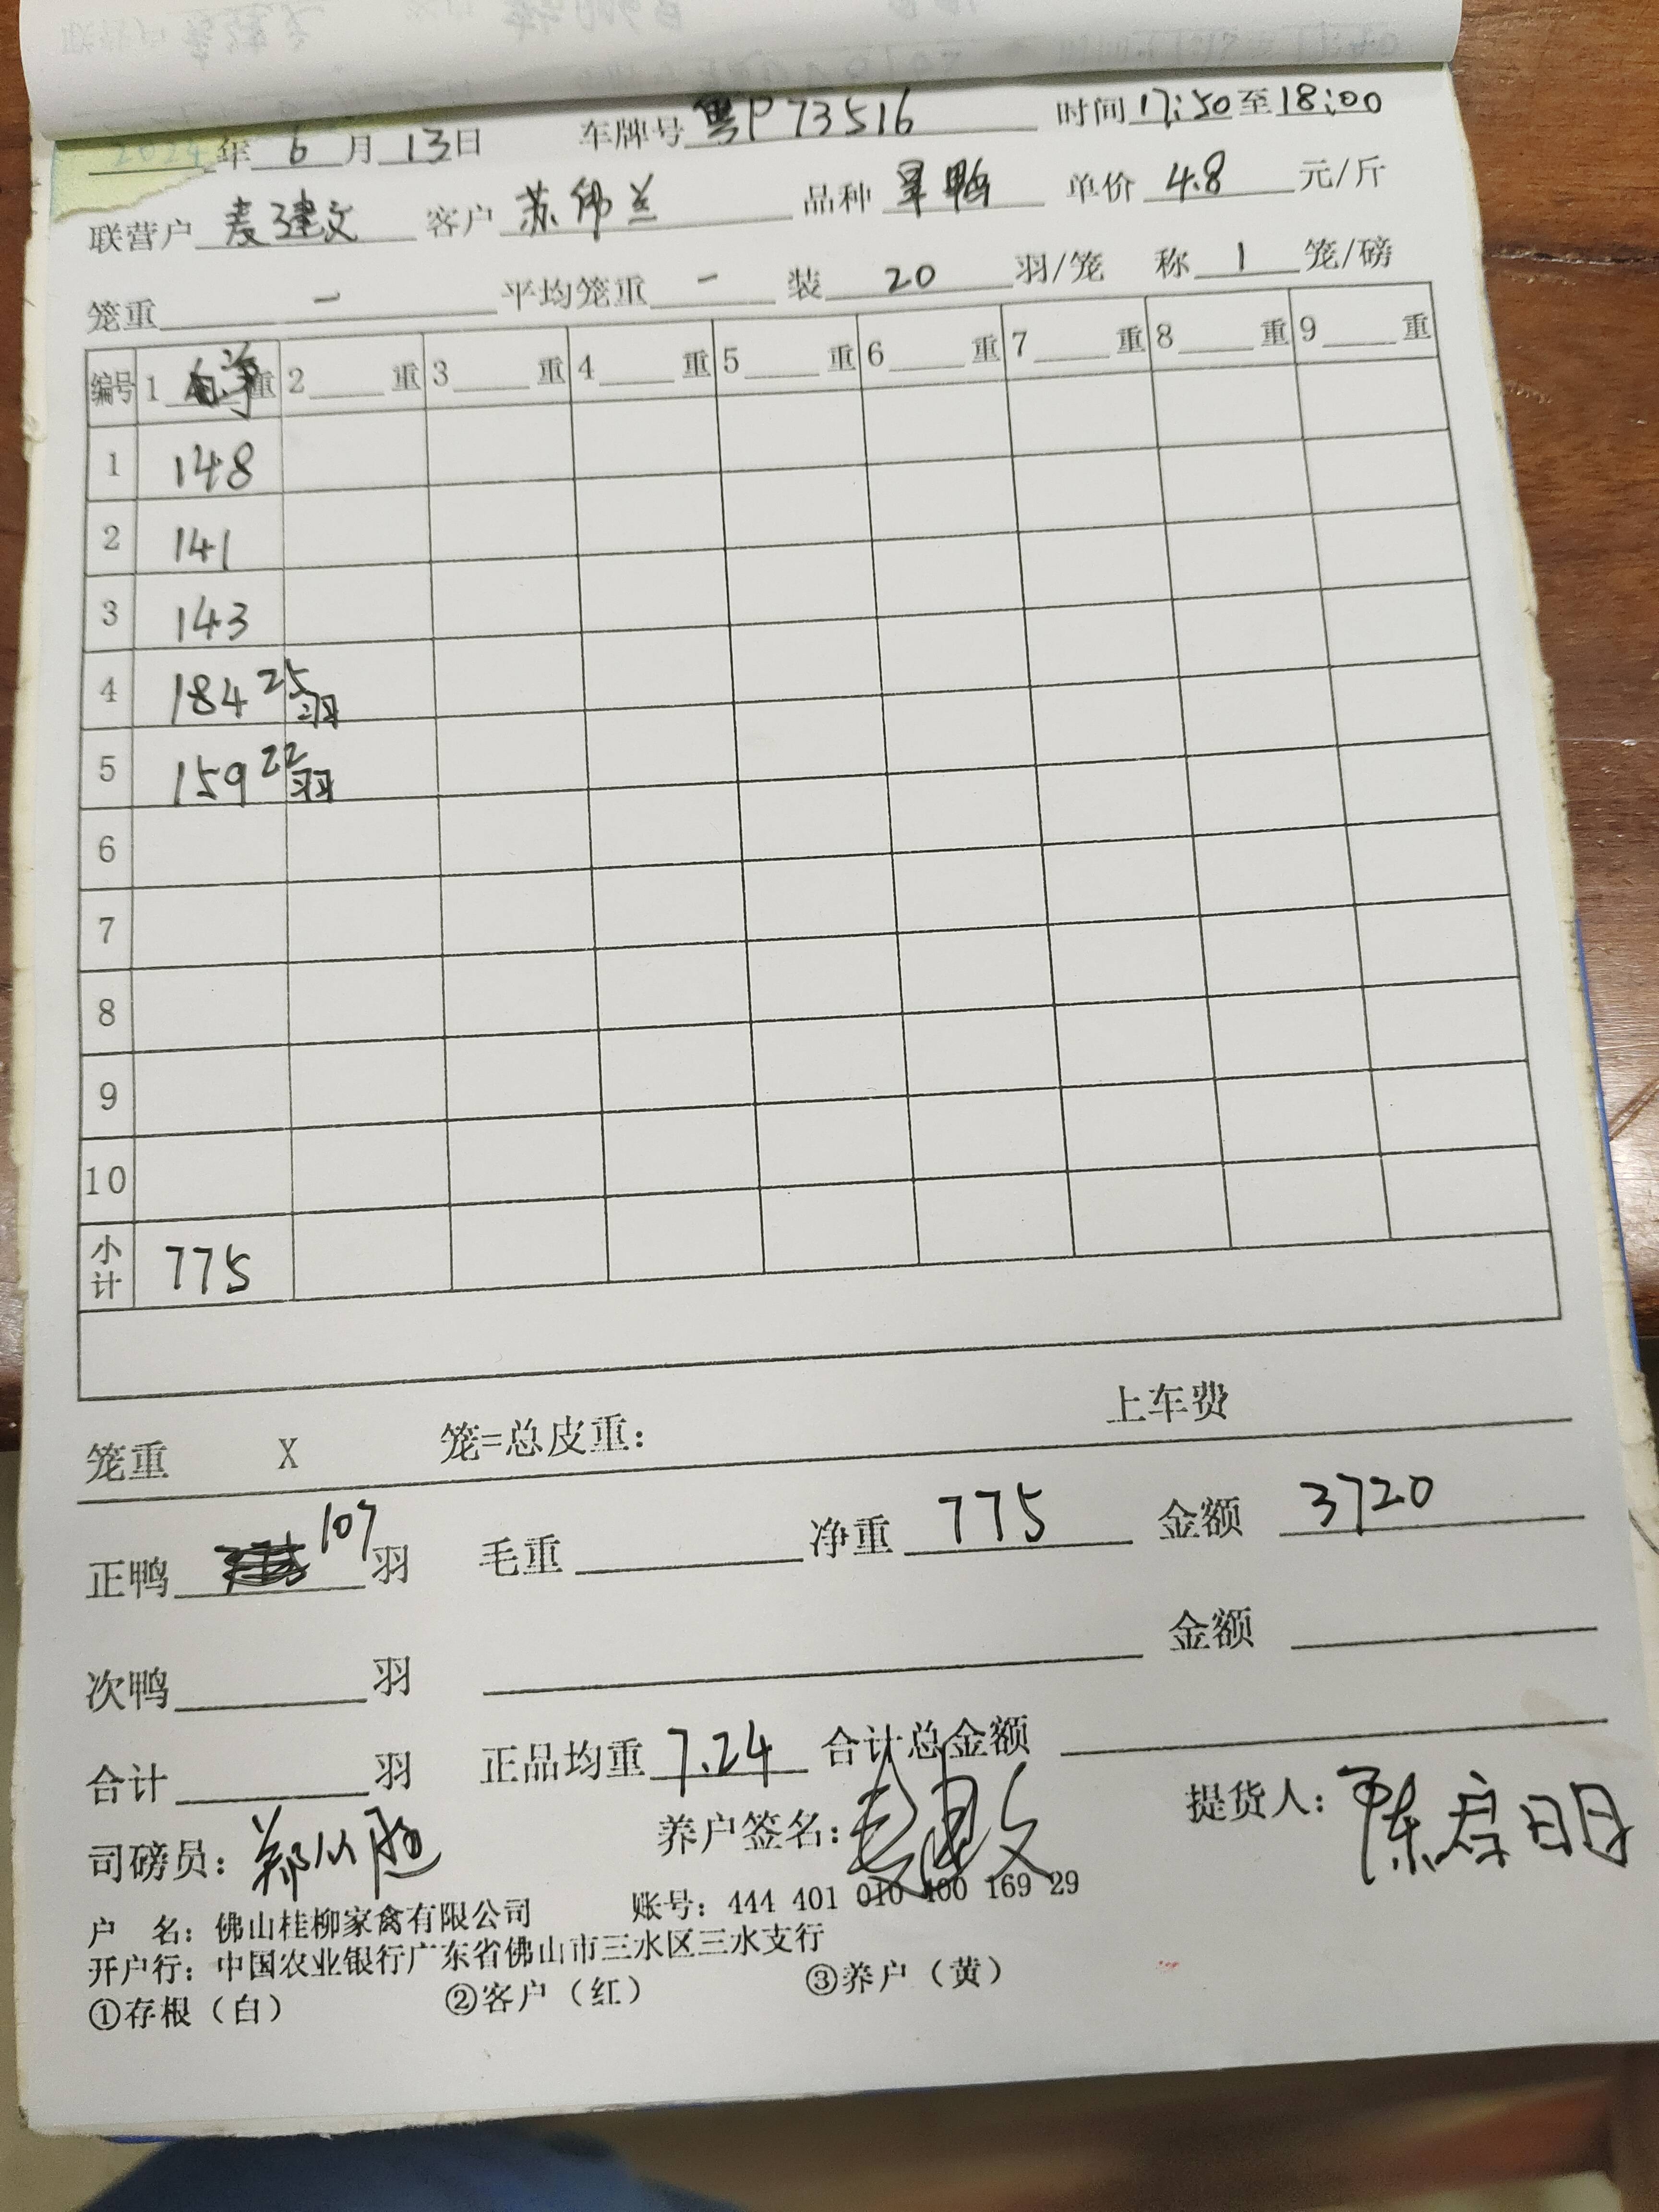 2024年 6 月 13日 车牌号 粤P73516 时间 17:50 至 18:00
联营户 麦建文 客户 苏伟兰 品种 旱鸭 单价 4.8 元/斤
笼重 一 平均笼重 一 装 20 羽/笼 称 1 笼/磅
编号 1 净重 2 重 3 重 4 重 5 重 6 重 7 重 8 重 9 重
1 148
2 141
3 143
4 184 25羽
5 159 22羽
6
7
8
9
10
小计 775
笼重 X 笼=总皮重: 上车费
正鸭 107 羽 毛重 净重 775 金额 3720
次鸭 羽 金额
合计 羽 正品均重 7.24 合计总金额
司磅员: 养户签名: 提货人:
户 名: 佛山桂柳家禽有限公司 账号: 444 401 010 400 169 29
开户行: 中国农业银行广东省佛山市三水区三水支行
①存根（白） ②客户（红） ③养户（黄）